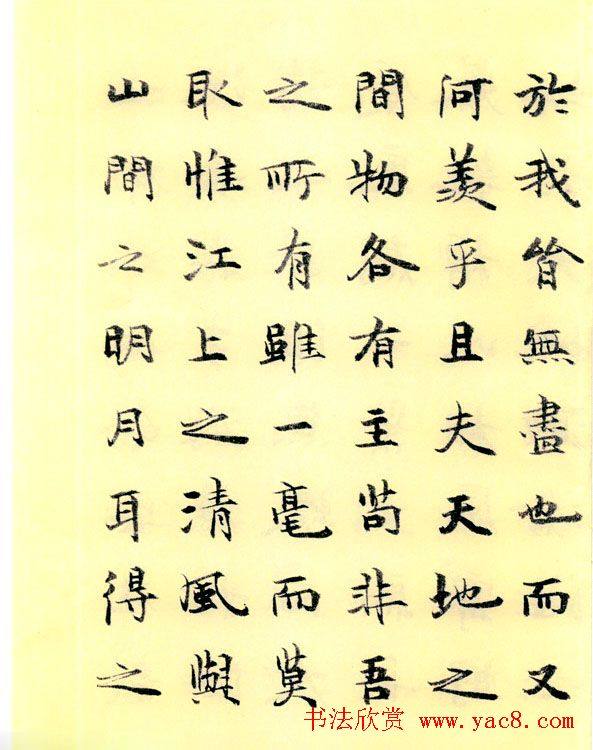 於我皆無盡也而又
何羨乎且夫天地之
間物各有主苟非吾
之所有雖一毫而莫
取惟江上之清風與
山間之明月耳得之
书法欣赏 www.yac8.com